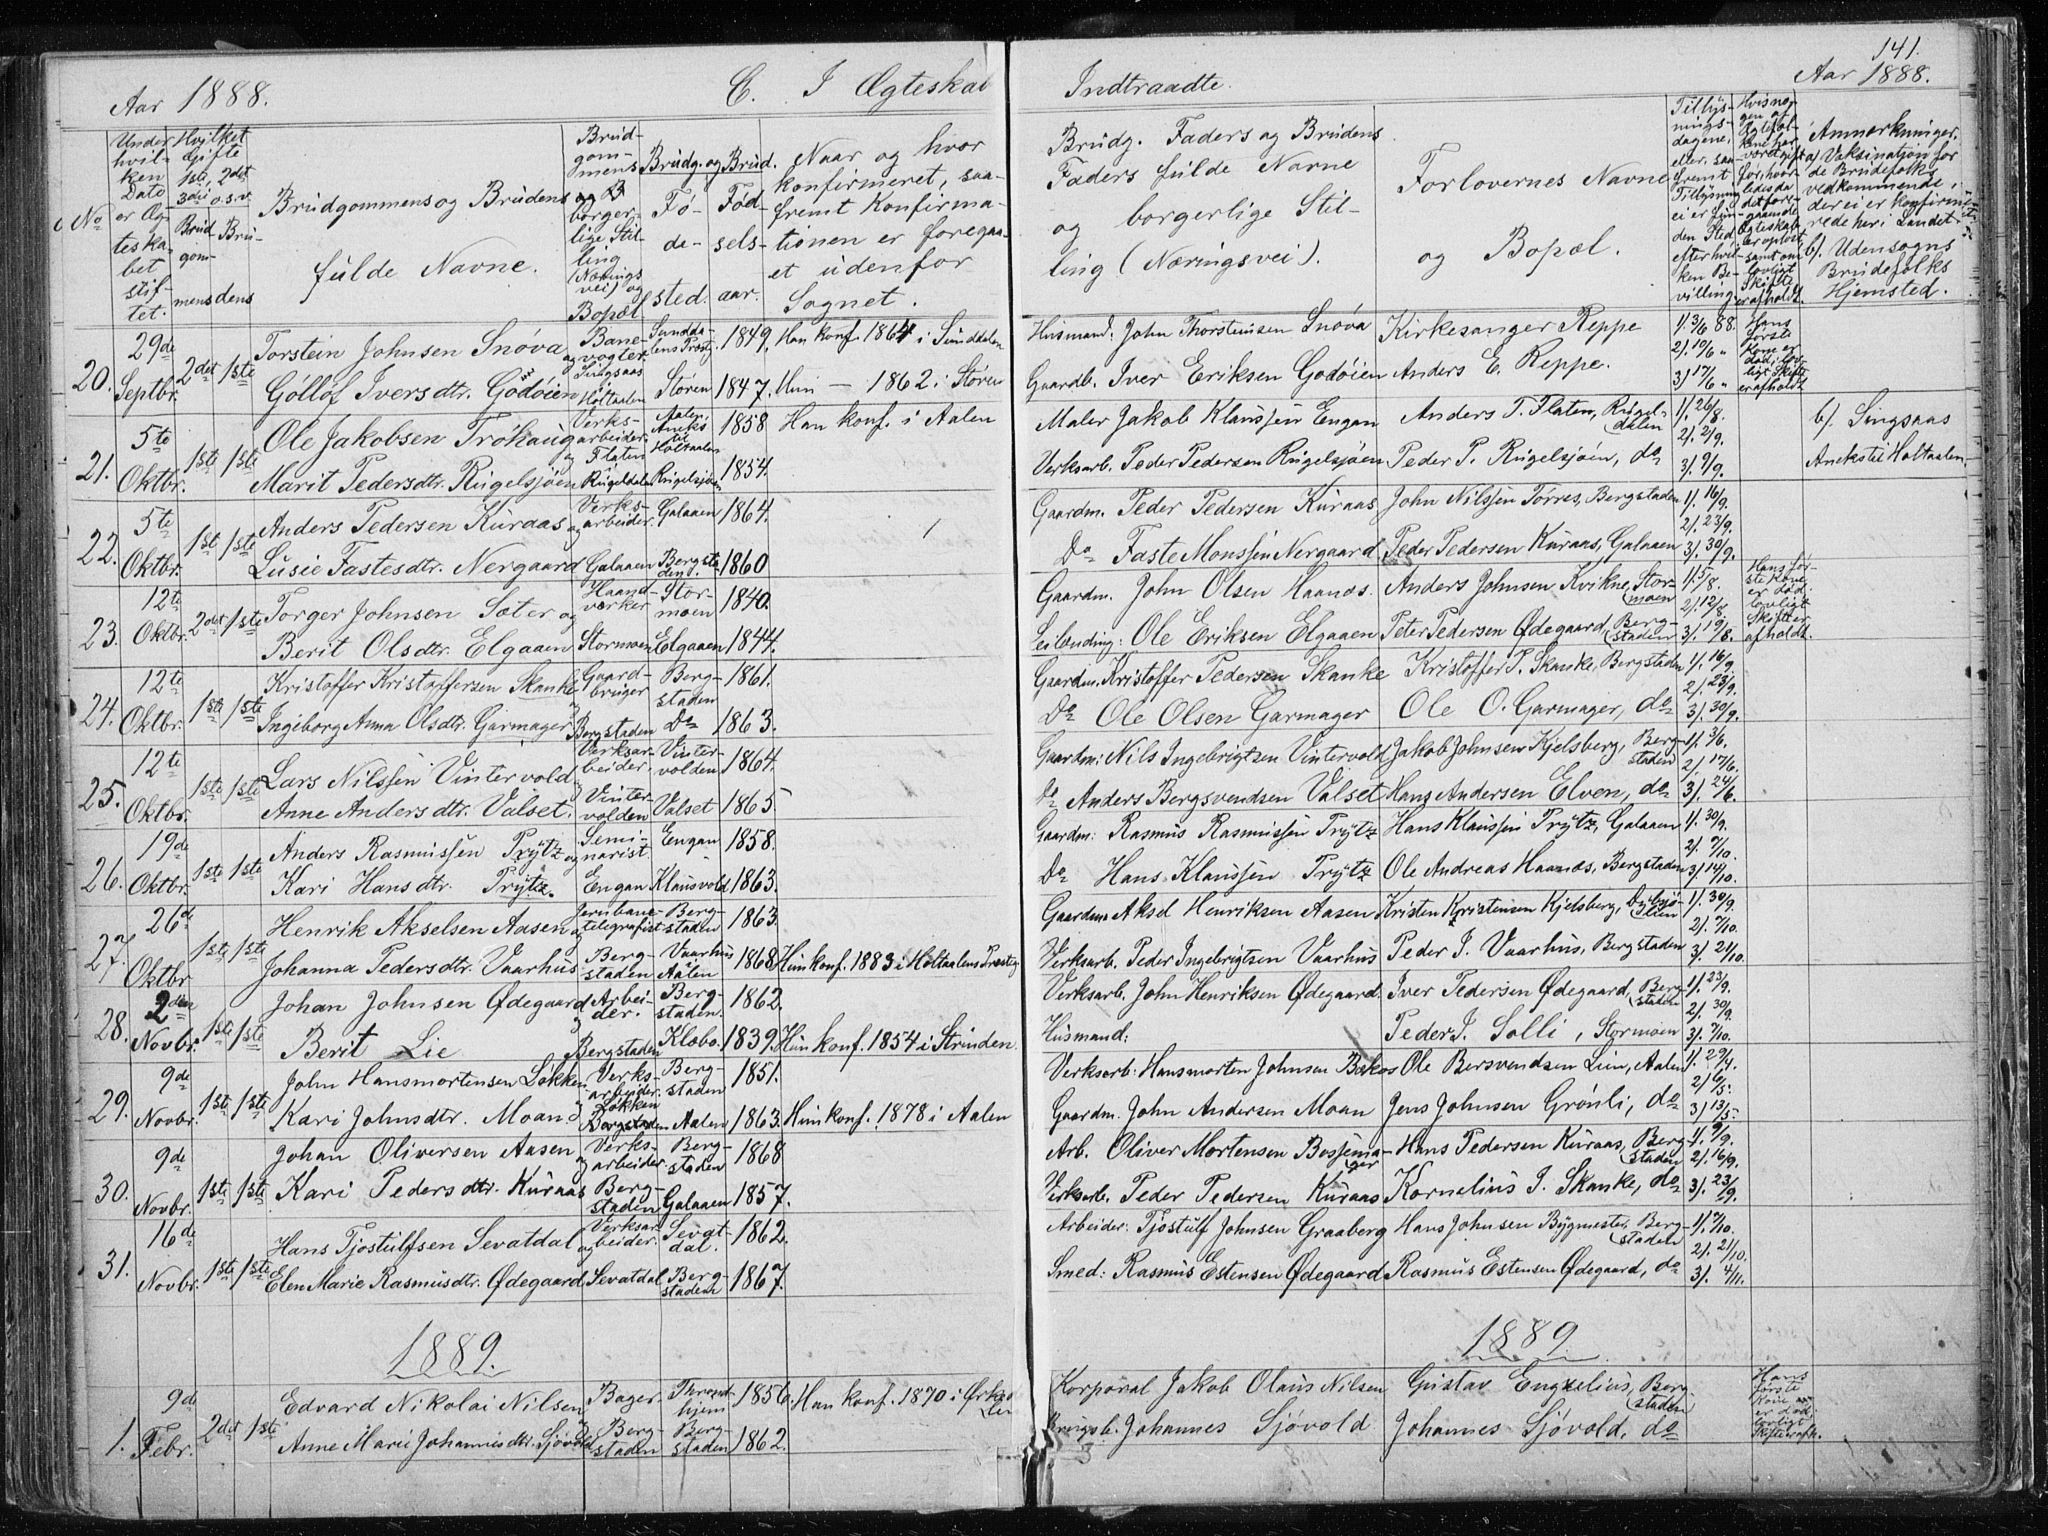 141.
Aar 1888.
C. I Ægteskab
Indtraadte.
Aar 1888.
No
Under hvilken Dato er Ægteskabet stiftet.
Hvilket Gifte 1ste, 2det 3die o.s.v.
Brudgommens
Brudens
Brudgommens og Brudens fulde Navne.
Brudgommens og borgerlige Stilling (Næringsvei) og Bopæl
Brudg. og Brud. Fødested.
Fødselsaar.
Naar og hvor konfirmeret, saafremt Konfirmationen er foregaaet udenfor Sognet.
Brudg. Faders og Brudens Faders fulde Navne og borgerlige Stilling (Næringsvei).
Forlovernes Navne og Bopæl.
Anmærkninger, a) Vaksination for de Brudefolks vedkommende, der ei er konfirmerede her i Landet. b) Udensogns Brudefolks Hjemsted.
20. 29de Septbr. 2det 1ste
Torstein Johnsen Snøva og
Gølløf Iversdtr. Gödöien
Banevogter Singsaas Høltaalen
Sunddalens Præstg. 1849. Han konf. 1864 i Sunddalen
Støren 1847. Hun — 1862 i Støren
Husmand. John Thorsteinsen Snøva
Gaardb. Iver Eriksen Godøien
Kirkesanger Reppe
Anders E. Reppe.
1). 3/6 88.
2). 10/6 "
3) 17/6 "
Hans første Kone er død, lovligt Skifte er afholdt
21. 5te Oktbr. 1ste 1ste
Ole Jakobsen Tröhaug og
Marit Pedersdtr. Rugelsjöen
Verksarbeider. Flaten Rugeldalen
Aalen Aneks til Holtaalen 1858 Han konf. i Aalen
Rugelsjöen 1854.
Maler Jakob Klaussen Engan
Verksarb. Peder Pedersen Rugelsjöen
Anders T. Flaten, Rugeldalen
Peder P. Rugelsjöen, do
1). 26/8.
2). 2/9.
3). 9/9.
b). Singsaas Aneks til Holtaalen.
22. 5te Oktbr. 1ste 1ste
Anders Pedersen Kuraas og
Lusie Fastesdtr. Nergaard
Verksarbeider. Galaaen
Galaaen 1864.
Bergstaden. 1860
Gaardm. Peder Pedersen Kuraas
Do Faste Monssen Nergaard
John Nilssen Torres, Bergstaden
Peder Pedersen Kuraas, Galaaen
1). 16/9.
2). 23/9.
3). 30/9.
23. 12te Oktbr. 2det 1ste
Torger Johnsen Sæter og
Berit Olsdtr. Elgaaen
Haandverker Stormoen
Stormoen 1840.
Elgaaen 1844.
Gaardm. John Olsen Haanæs.
Leilending: Ole Eriksen Elgaaen
Anders Johnsen Kvikne, Stormoen
Peter Pedersen Ødegaard, Bergstaden
1). 5/8.
2). 12/8
3). 19/8.
Hans første Kone er död. lovligt Skifte er afholdt.
24. 12te Oktbr. 1ste 1ste
Kristoffer Kristoffersen Skanke
Ingeborg Anna Olsdtr. Garmager
Gaardbruger Bergstaden
Bergstaden 1861.
Do 1863.
Gaardm. Kristoffer Pedersen Skanke
Do Ole Olsen Garmager
Kristoffer P. Skanke, Bergstaden
Ole O. Garmager, do
1). 16/9
2). 23/9.
3). 30/9.
25. 12te Oktbr. 1ste 1ste
Lars Nilssen Vintervold
Anne Andersdtr. Valset.
Verksarbeider. Vintervolden
Vintervolden 1864.
Valset 1865
Gaardm: Nils Ingebrigtsen Vintervold
Do Anders Bergsvendsen Valset
Jakob Johnsen Kjelsberg, Bergstaden
Hans Andersen Elven, do
1). 3/6.
2). 17/6.
3). 24/6.
26. 19de Oktbr. 1ste 1ste
Anders Rasmussen Prytz og
Kari Hansdtr. Prytz.
Seminarist. Engan
Engan 1858.
Klausvold 1863.
Gaardm: Rasmus Rasmussen Prytz
Do Hans Klaussen Prytz
Hans Klaussen Prytz, Galaaen
Ole Andreas Haanæs, Bergstaden
1). 30/9.
2). 7/10.
3) 14/10.
27. 26d Oktbr 1ste 1ste
Henrik Akselsen Aasen og
Johanna Pedersdtr. Vaarhus
Jernbanetelegrafist Bergstaden
Bergstaden 1863.
Vaarhus Aalen 1868 Hun konf. 1883 i Holtaalens Præstg.
Gaardm. Aksel Henriksen Aasen
Verksarb. Peder Ingebrigtsen Vaarhus
Kristen Kristensen Kjelsberg,
Peder I. Vaarhus, Bergstaden
1). 30/9.
2). 7/10.
3). 21/10.
28. 2den Novbr. 1ste 1ste
Johan Johnsen Ødegaard
Berit Lie
Arbeider. Bergstaden
Bergstaden. 1862.
Klæbo. 1839. Hun konf. 1854 i Strinden.
Verksarb. John Henriksen Ødegaard.
Husmand:
Iver Pedersen Ødegaard, Bergstaden
Peder J. Solli, Stormoen
1). 23/9.
2). 30/9.
3). 7/10.
29. 9de Novbr. 1ste 1ste
John Hansmortensen Løkken
Kari Johnsdtr. Moan
Verksarbeider. Løkken Bergstaden
Bergstaden 1851.
Aalen 1863. Hun konf. 1878 i Aalen
Verksarb: Hansmorten Johnsen Bekos
Gaardm. John Andersen Moan
Ole Bersvendsen Lien, Aalen
Jens Johnsen Grønli, do
1). 29/4.
2) 6/5.
3) 13/5.
30. 9de Novbr. 1ste 1ste
Johan Oliversen Aasen
Kari Pedersdtr. Kuraas
Verksarbeider. Bergstaden
Bergstaden 1868
Galaaen 1857.
Arb. Oliver Mortensen Bossemager
Verksarb. Peder Pedersen Kuraas
Hans Pedersen Kuraas, Bergstaden
Kornelius J. Skanke, do
1). 9/9.
2). 16/9.
3). 23/9.
31. 16de Novbr. 1ste 1ste
Hans Tjostulfsen Sevatdal og
Elen Marie Rasmusdtr. Ødegaard
Verksarbeider. Sevatdal
Sevatdal. 1862.
Bergstaden 1867.
Arbeider: Tjostulf Johnsen Graaberg
Smed: Rasmus Estensen Ødegaard
Hans Johnsen Bygmester, Bergstaden
Rasmus Estensen Ødegaard, do
1). 7/10.
2). 21/10.
3). 4/11.
1889.
1889.
1. 9de Febr. 2det 1ste
Edvard Nikolai Nilsen
Anne Marie Johannesdtr. Sjøvold
Bager. Bergstaden
Throndhjem 1856. Han konf. 1870 i
Bergstaden 1862.
Korporal Jakob Olaus Nilsen
Johannes Sjövold
Gustav Engzelius, Bergstaden
Johannes Sjövold, do
Hans første Kone er død lovligt Skifte afh.